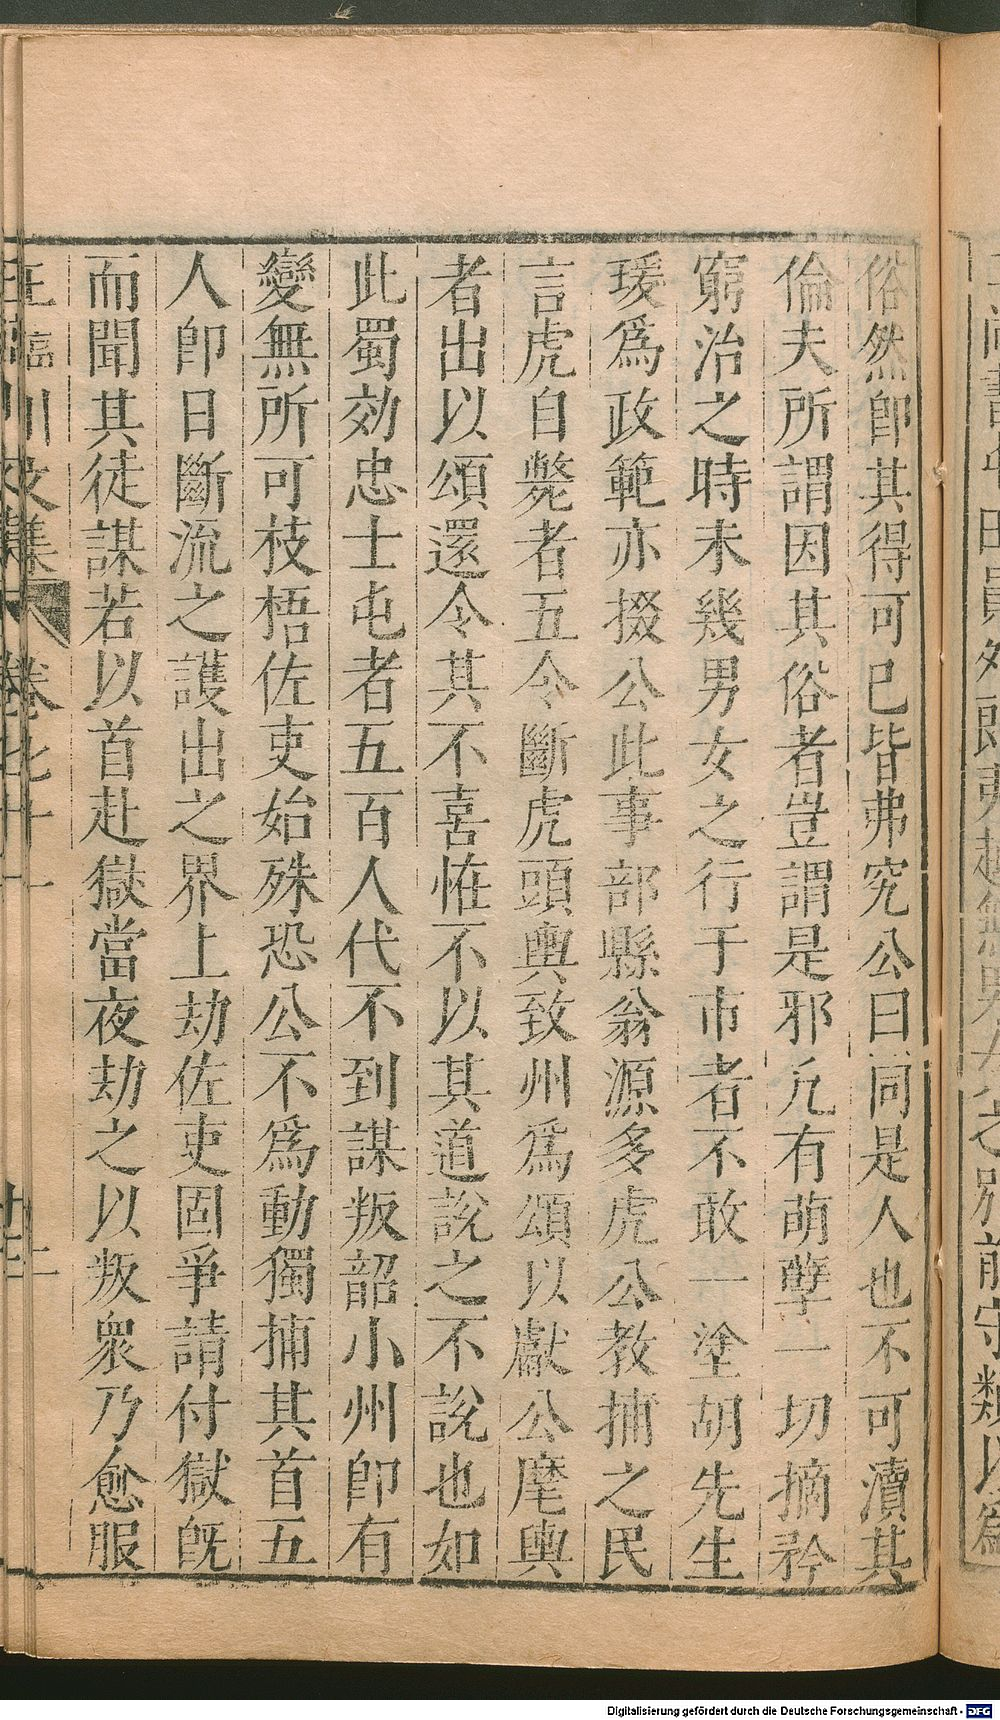 俗然即其得可巳皆弗究公曰同是人也不可瀆其
倫夫所謂因其俗者豈謂是邪凢有萌孽一切摘矜
窮治之時未幾男女之行于市者不敢一塗胡先生
瑗爲政範亦掇公此事部縣翁源多虎公教捕之民
言虎自斃者五令斷虎頭輿致州爲頌以獻公麾輿
者出以頌還令其不喜恠不以其道說之不說也如
此蜀効忠士屯者五百人代不到謀叛韶小州即有
變無所可枝梧佐吏始殊恐公不爲動獨捕其首五
人即日斷流之護出之界上劫佐吏固爭請付獄旣
而聞其徒謀若以首赴獄當夜劫之以叛衆乃愈服
王臨川文集 卷七十一
Digitalisierung gefördert durch die Deutsche Forschungsgemeinschaft - DFG